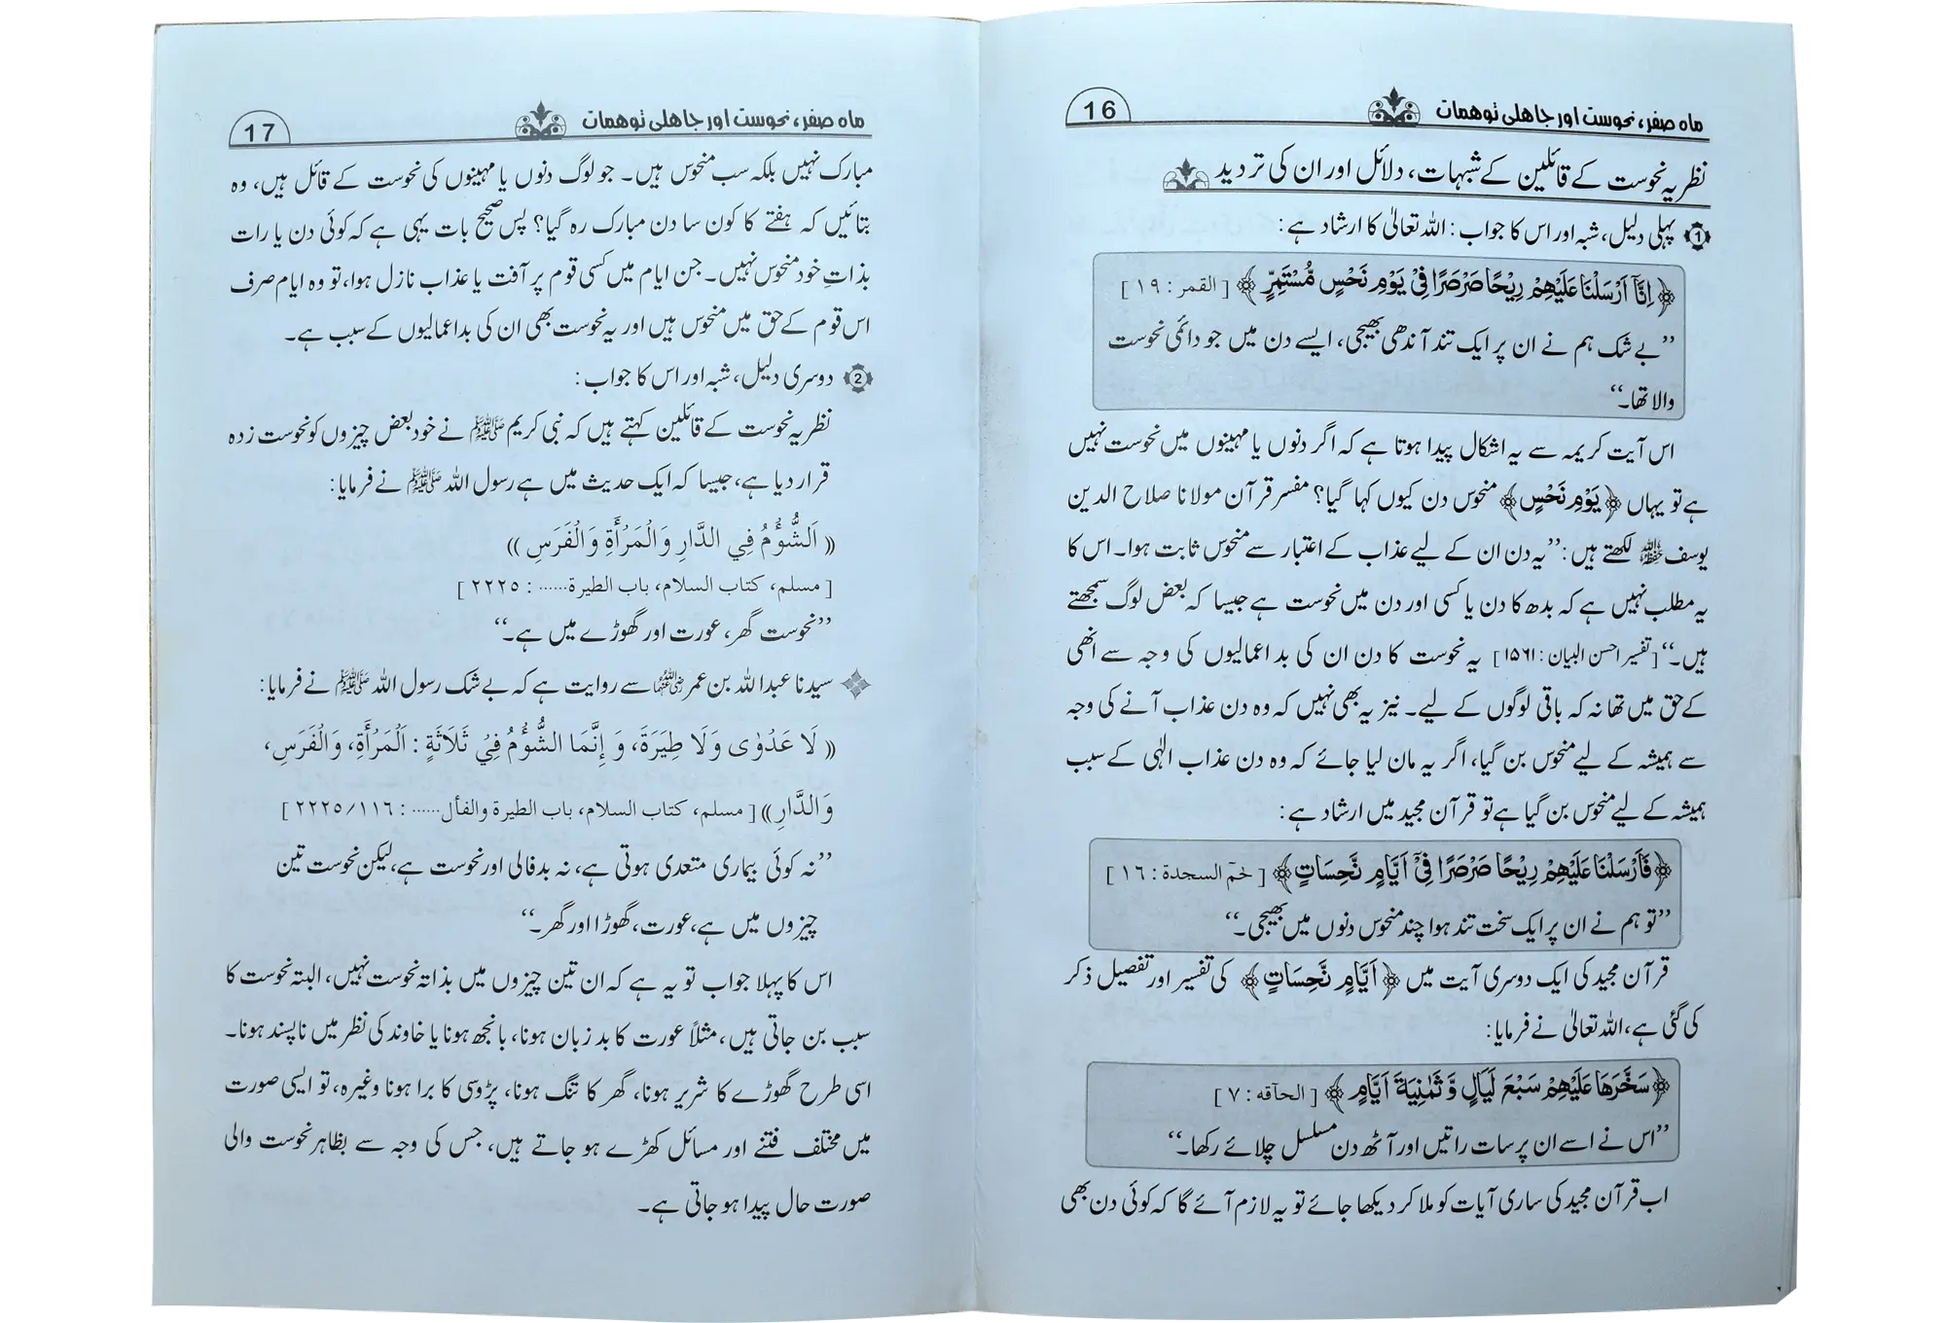 ماہ صفر، نحوست اور جاہلی توہمات
16
نظریہ نحوست کے قائلین کے شبہات، دلائل اور ان کی تردید
1 پہلی دلیل، شبہ اور اس کا جواب: اللہ تعالیٰ کا ارشاد ہے:
﴿اِنَّآ اَرْسَلْنَا عَلَيْهِمْ رِيْحًا صَرْصَرًا فِيْ يَوْمِ نَحْسٍ مُّسْتَمِرٍّ﴾ [القمر: ١٩]
’’بے شک ہم نے ان پر ایک تند آندھی بھیجی، ایسے دن میں جو دائمی نحوست
والا تھا۔‘‘
اس آیت کریمہ سے یہ اشکال پیدا ہوتا ہے کہ اگر دنوں یا مہینوں میں نحوست نہیں
ہے تو یہاں ﴿يَوْمِ نَحْسٍ﴾ منحوس دن کیوں کہا گیا؟ مفسر قرآن مولانا صلاح الدین
یوسف حفظہ اللہ لکھتے ہیں: ’’یہ دن ان کے لیے عذاب کے اعتبار سے منحوس ثابت ہوا۔ اس کا
یہ مطلب نہیں ہے کہ بدھ کا دن یا کسی اور دن میں نحوست ہے جیسا کہ بعض لوگ سمجھتے
ہیں۔‘‘ [تفسیر احسن البیان: ۱۵۶۱] یہ نحوست کا دن ان کی بد اعمالیوں کی وجہ سے انھی
کے حق میں تھا نہ کہ باقی لوگوں کے لیے۔ نیز یہ بھی نہیں کہ وہ دن عذاب آنے کی وجہ
سے ہمیشہ کے لیے منحوس بن گیا، اگر یہ مان لیا جائے کہ وہ دن عذاب الٰہی کے سبب
ہمیشہ کے لیے منحوس بن گیا ہے تو قرآن مجید میں ارشاد ہے:
﴿فَاَرْسَلْنَا عَلَيْهِمْ رِيْحًا صَرْصَرًا فِيْٓ اَيَّامٍ نَّحِسَاتٍ﴾ [حٰمٓ السجدة: ١٦]
’’تو ہم نے ان پر ایک سخت تند ہوا چند منحوس دنوں میں بھیجی۔‘‘
قرآن مجید کی ایک دوسری آیت میں ﴿اَيَّامٍ نَّحِسَاتٍ﴾ کی تفسیر اور تفصیل ذکر
کی گئی ہے، اللہ تعالیٰ نے فرمایا:
﴿سَخَّرَهَا عَلَيْهِمْ سَبْعَ لَيَالٍ وَّثَمٰنِيَةَ اَيَّامٍ﴾ [الحآقه: ٧]
’’اس نے اسے ان پر سات راتیں اور آٹھ دن مسلسل چلائے رکھا۔‘‘
اب قرآن مجید کی ساری آیات کو ملا کر دیکھا جائے تو یہ لازم آئے گا کہ کوئی دن بھی
ماہ صفر، نحوست اور جاہلی توہمات
17
مبارک نہیں بلکہ سب منحوس ہیں۔ جو لوگ دنوں یا مہینوں کی نحوست کے قائل ہیں، وہ
بتائیں کہ ہفتے کا کون سا دن مبارک رہ گیا؟ پس صحیح بات یہی ہے کہ کوئی دن یا رات
بذاتِ خود منحوس نہیں۔ جن ایام میں کسی قوم پر آفت یا عذاب نازل ہوا، تو وہ ایام صرف
اس قوم کے حق میں منحوس ہیں اور یہ نحوست بھی ان کی بداعمالیوں کے سبب ہے۔
2 دوسری دلیل، شبہ اور اس کا جواب:
نظریہ نحوست کے قائلین کہتے ہیں کہ نبی کریم ﷺ نے خود بعض چیزوں کو نحوست زدہ
قرار دیا ہے، جیسا کہ ایک حدیث میں ہے رسول اللہ ﷺ نے فرمایا:
(( اَلشُّؤْمُ فِي الدَّارِ وَالْمَرْأَةِ وَالْفَرَسِ ))
[مسلم، كتاب السلام، باب الطيرة...... : ٢٢٢٥]
’’نحوست گھر، عورت اور گھوڑے میں ہے۔‘‘
سیدنا عبداللہ بن عمر رضی اللہ عنہما سے روایت ہے کہ بے شک رسول اللہ ﷺ نے فرمایا:
(( لَا عَدْوٰى وَلَا طِيَرَةَ، وَ إِنَّمَا الشُّؤْمُ فِيْ ثَلَاثَةٍ : اَلْمَرْأَةِ، وَالْفَرَسِ،
وَالدَّارِ)) [مسلم، كتاب السلام، باب الطيرة والفأل...... : ٢٢٢٥/١١٦]
’’نہ کوئی بیماری متعدی ہوتی ہے، نہ بدفالی اور نحوست ہے، لیکن نحوست تین
چیزوں میں ہے، عورت، گھوڑا اور گھر۔‘‘
اس کا پہلا جواب تو یہ ہے کہ ان تین چیزوں میں بذاتہ نحوست نہیں، البتہ نحوست کا
سبب بن جاتی ہیں، مثلاً عورت کا بد زبان ہونا، بانجھ ہونا یا خاوند کی نظر میں ناپسند ہونا۔
اسی طرح گھوڑے کا شریر ہونا، گھر کا تنگ ہونا، پڑوسی کا برا ہونا وغیرہ، تو ایسی صورت
میں مختلف فتنے اور مسائل کھڑے ہو جاتے ہیں، جس کی وجہ سے بظاہر نحوست والی
صورت حال پیدا ہو جاتی ہے۔